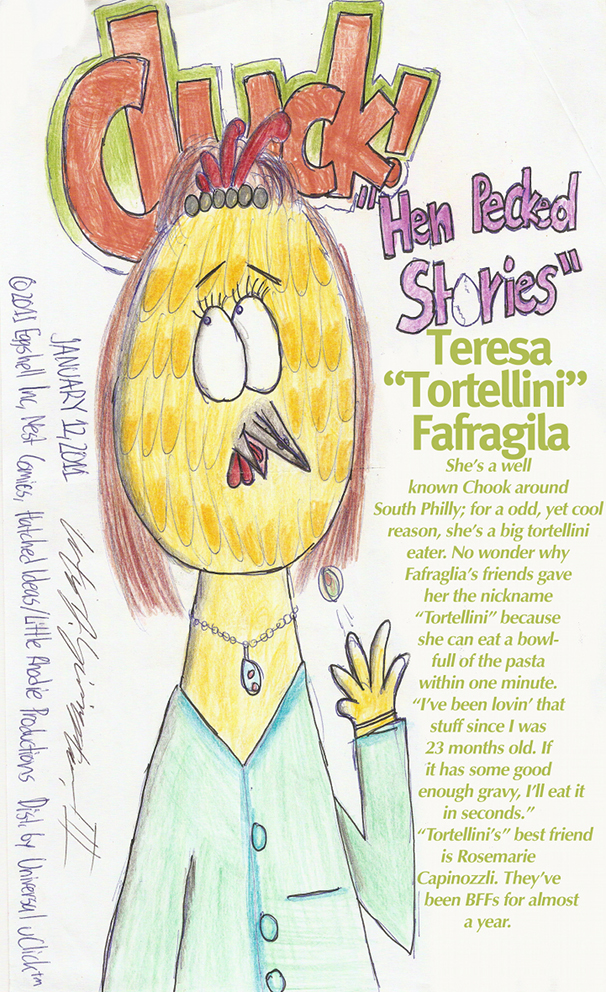 cluck!
"Hen Pecked
Stories"
Teresa
“Tortellini”
Fafragila
She's a well
known Chook around
South Philly; for a odd, yet cool
reason, she's a big tortellini
eater. No wonder why
Fafraglia's friends gave
her the nickname
“Tortellini” because
she can eat a bowl-
full of the pasta
within one minute.
“I've been lovin' that
stuff since I was
23 months old. If
it has some good
enough gravy, I'll eat it
in seconds.”
“Tortellini's” best friend
is Rosemarie
Capinozzli. They've
been BFFs for almost
a year.
JANUARY 12, 2011
III
©2011 Eggshell Inc, Nest Comics, Hatched Ideas/Little Anodie Productions Dist. by Universal uClick™